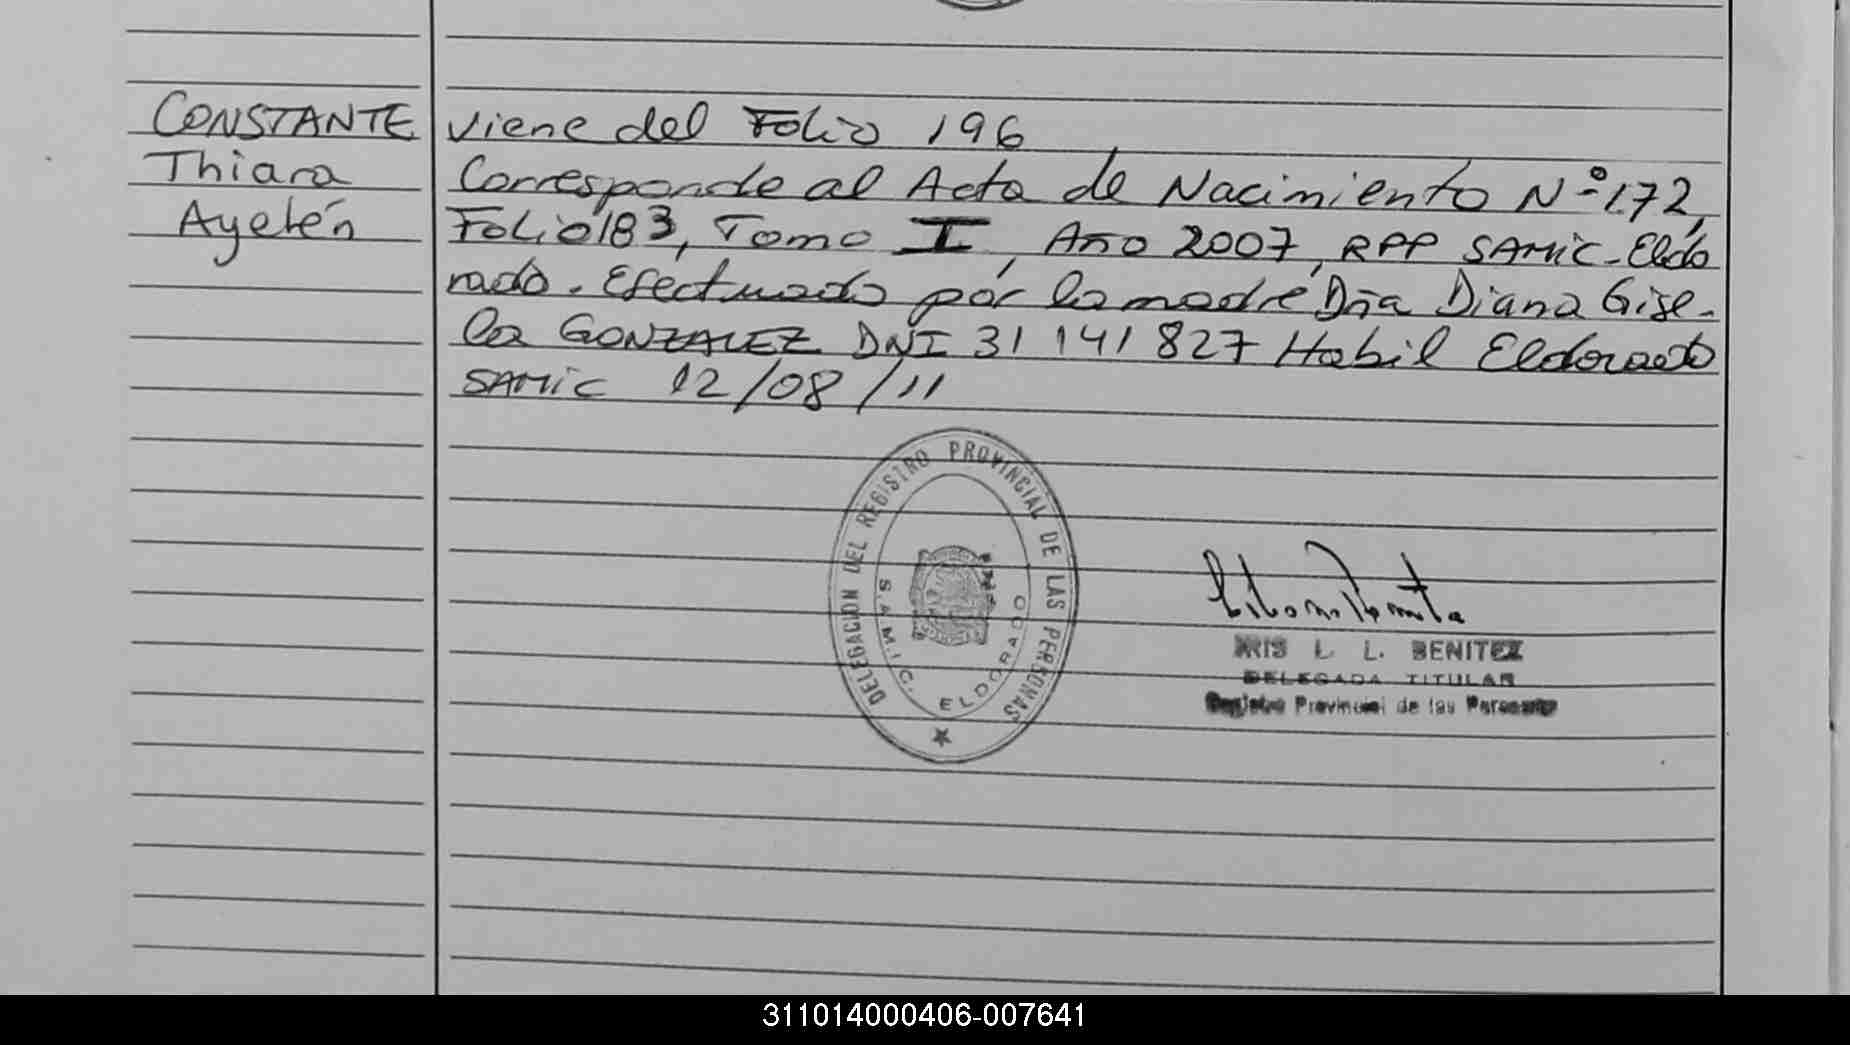 CONSTANTE
Thiara
Ayelén
viene del Folio 196
Corresponde al Acta de Nacimiento Nº 172,
Folio 183, Tomo I, Año 2007, RPP SAMIC-Eldo
rado. Efectuado por la madre Dña Diana Gise-
la GONZALEZ DNI 31 141 827 Habil Eldorado
SAMIC 12/08/11
DELEGACION DEL REGISTRO PROVINCIAL DE LAS PERSONAS
S.A.M.I.C. ELDORADO
IRIS L. L. BENITEZ
DELEGADA TITULAR
Registro Provincial de las Personas
311014000406-007641